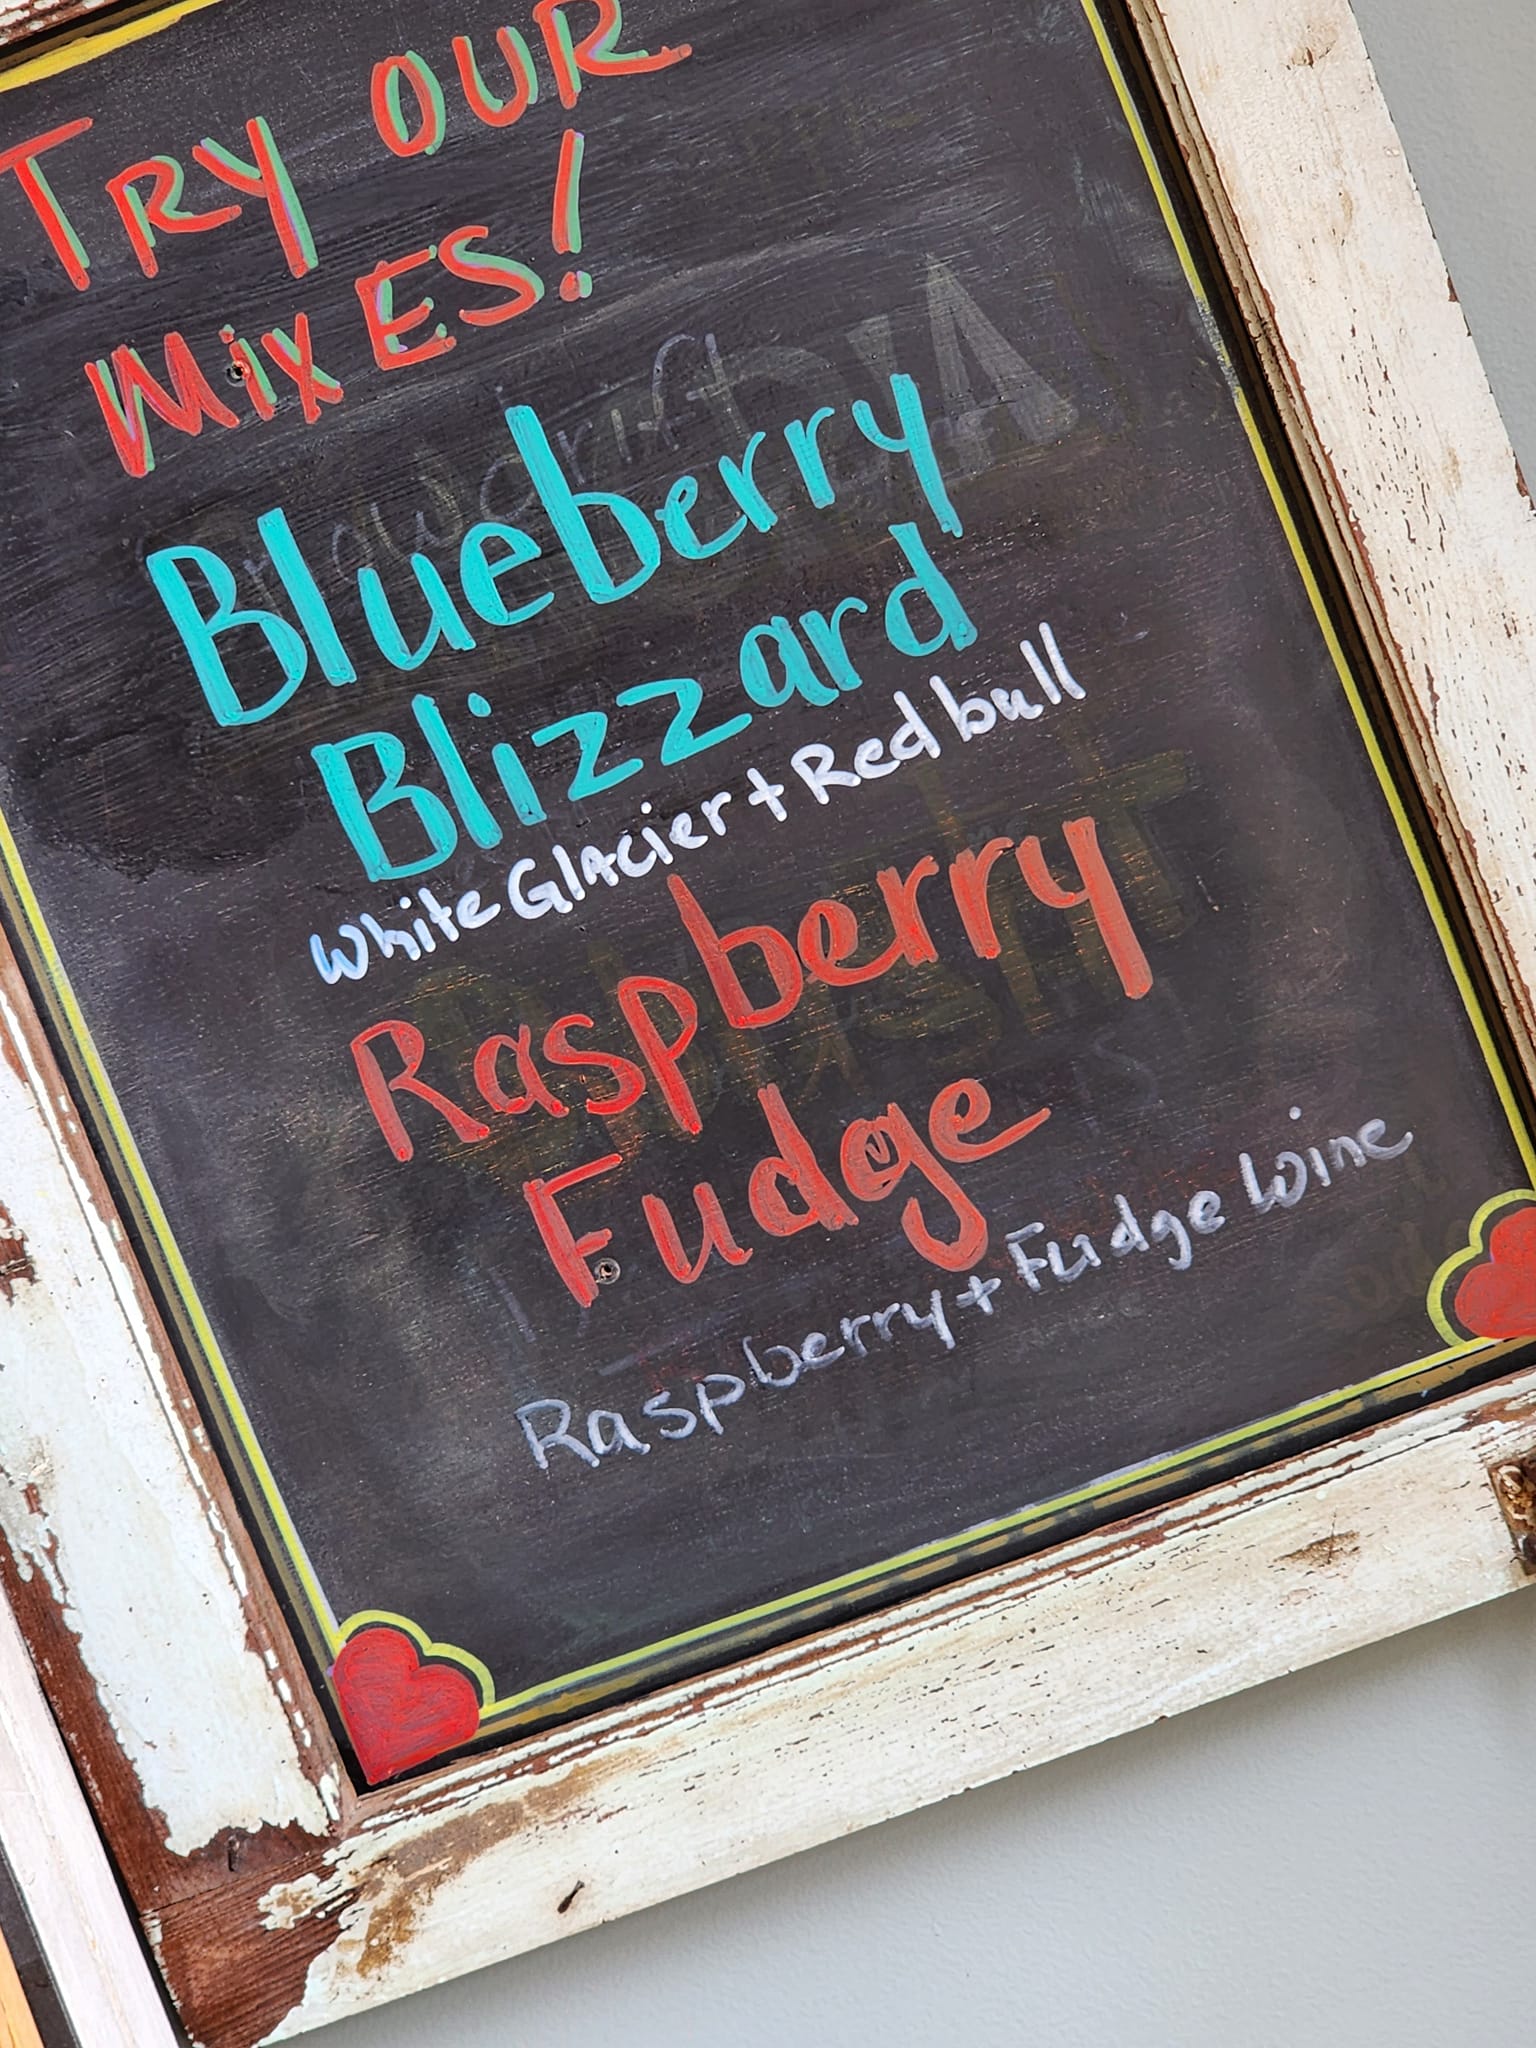 TRY OUR
MixES!
Blueberry
Blizzard
White GlAcier + Red bull
Raspberry
Fudge
Raspberry + Fudge Wine